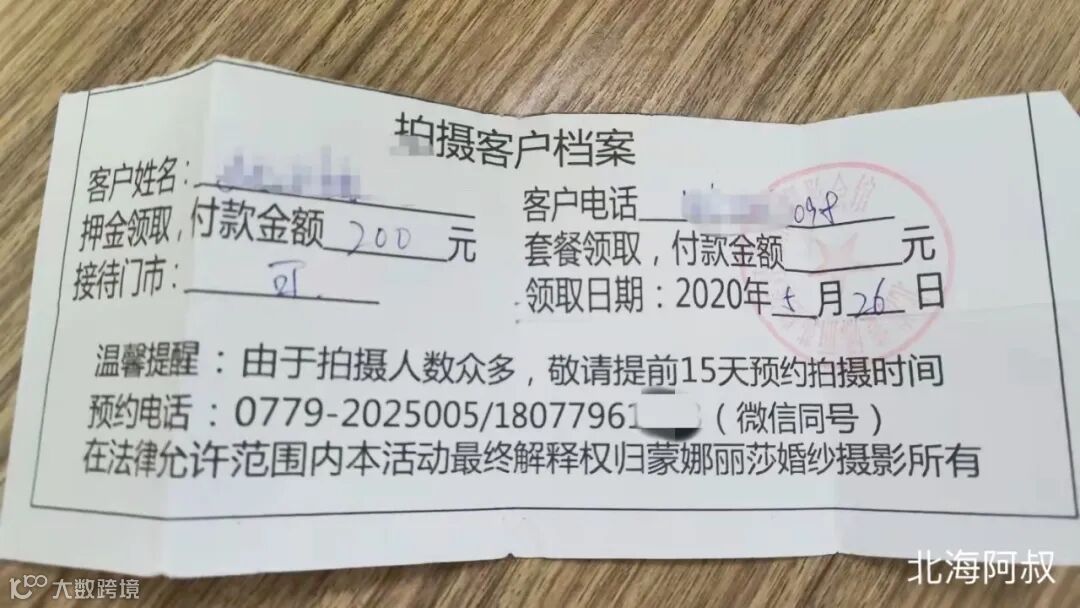 拍摄客户档案
客户姓名：
客户电话 098
押金领取，付款金额 200 元
套餐领取，付款金额 元
接待门市：
领取日期：2020年 5 月 26 日
温馨提醒：由于拍摄人数众多，敬请提前15天预约拍摄时间
预约电话：0779-2025005/18077961（微信同号）
在法律允许范围内本活动最终解释权归蒙娜丽莎婚纱摄影所有
北海阿叔
大数跨境